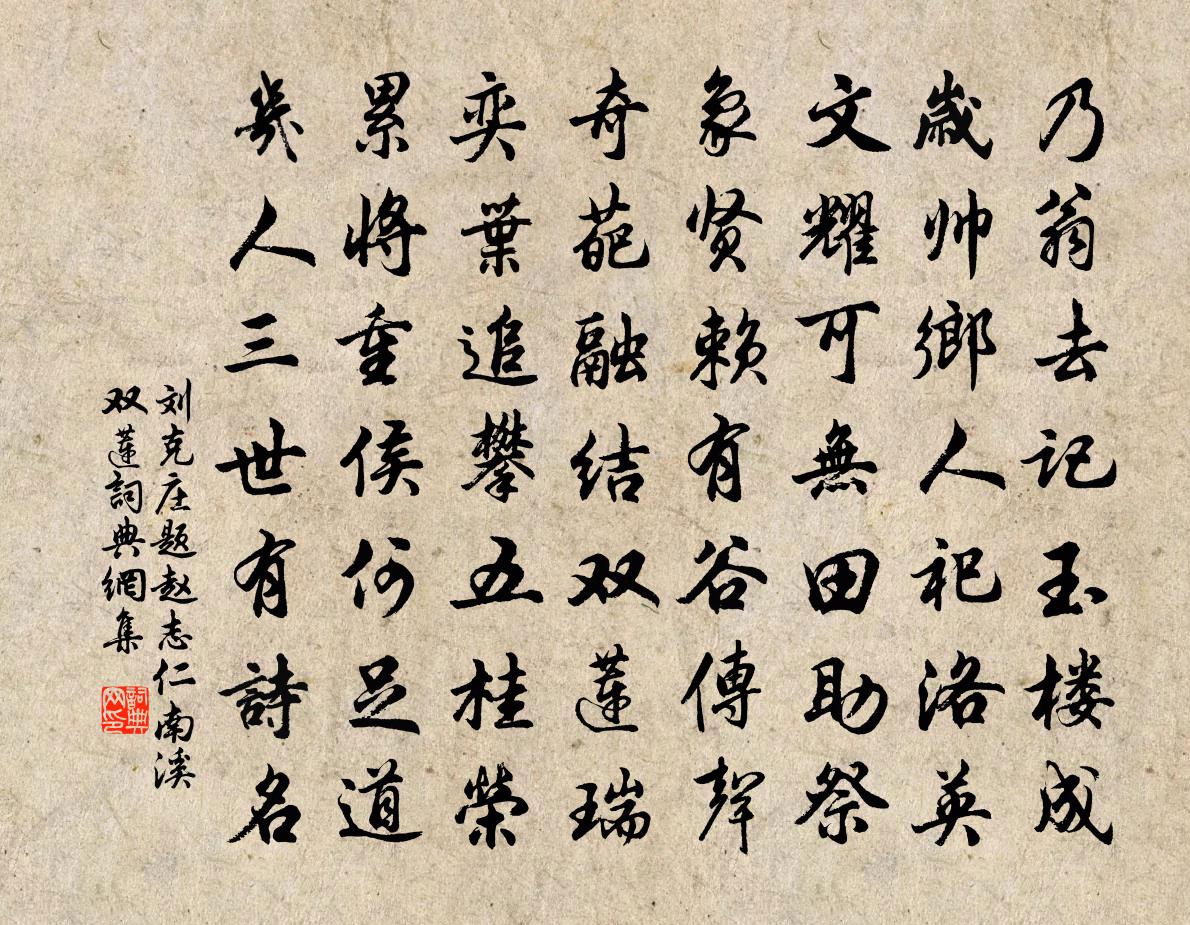 乃翁去记玉楼成
歲帅鄉人祀洛英
文耀可無田助祭
象贤赖有谷傳聲
奇葩融结双蓮瑞
奕葉追攀五桂榮
累將重侯何足道
幾人三世有詩名
刘克庄题赵志仁南溪
双蓮詞典網集
詞典
网印